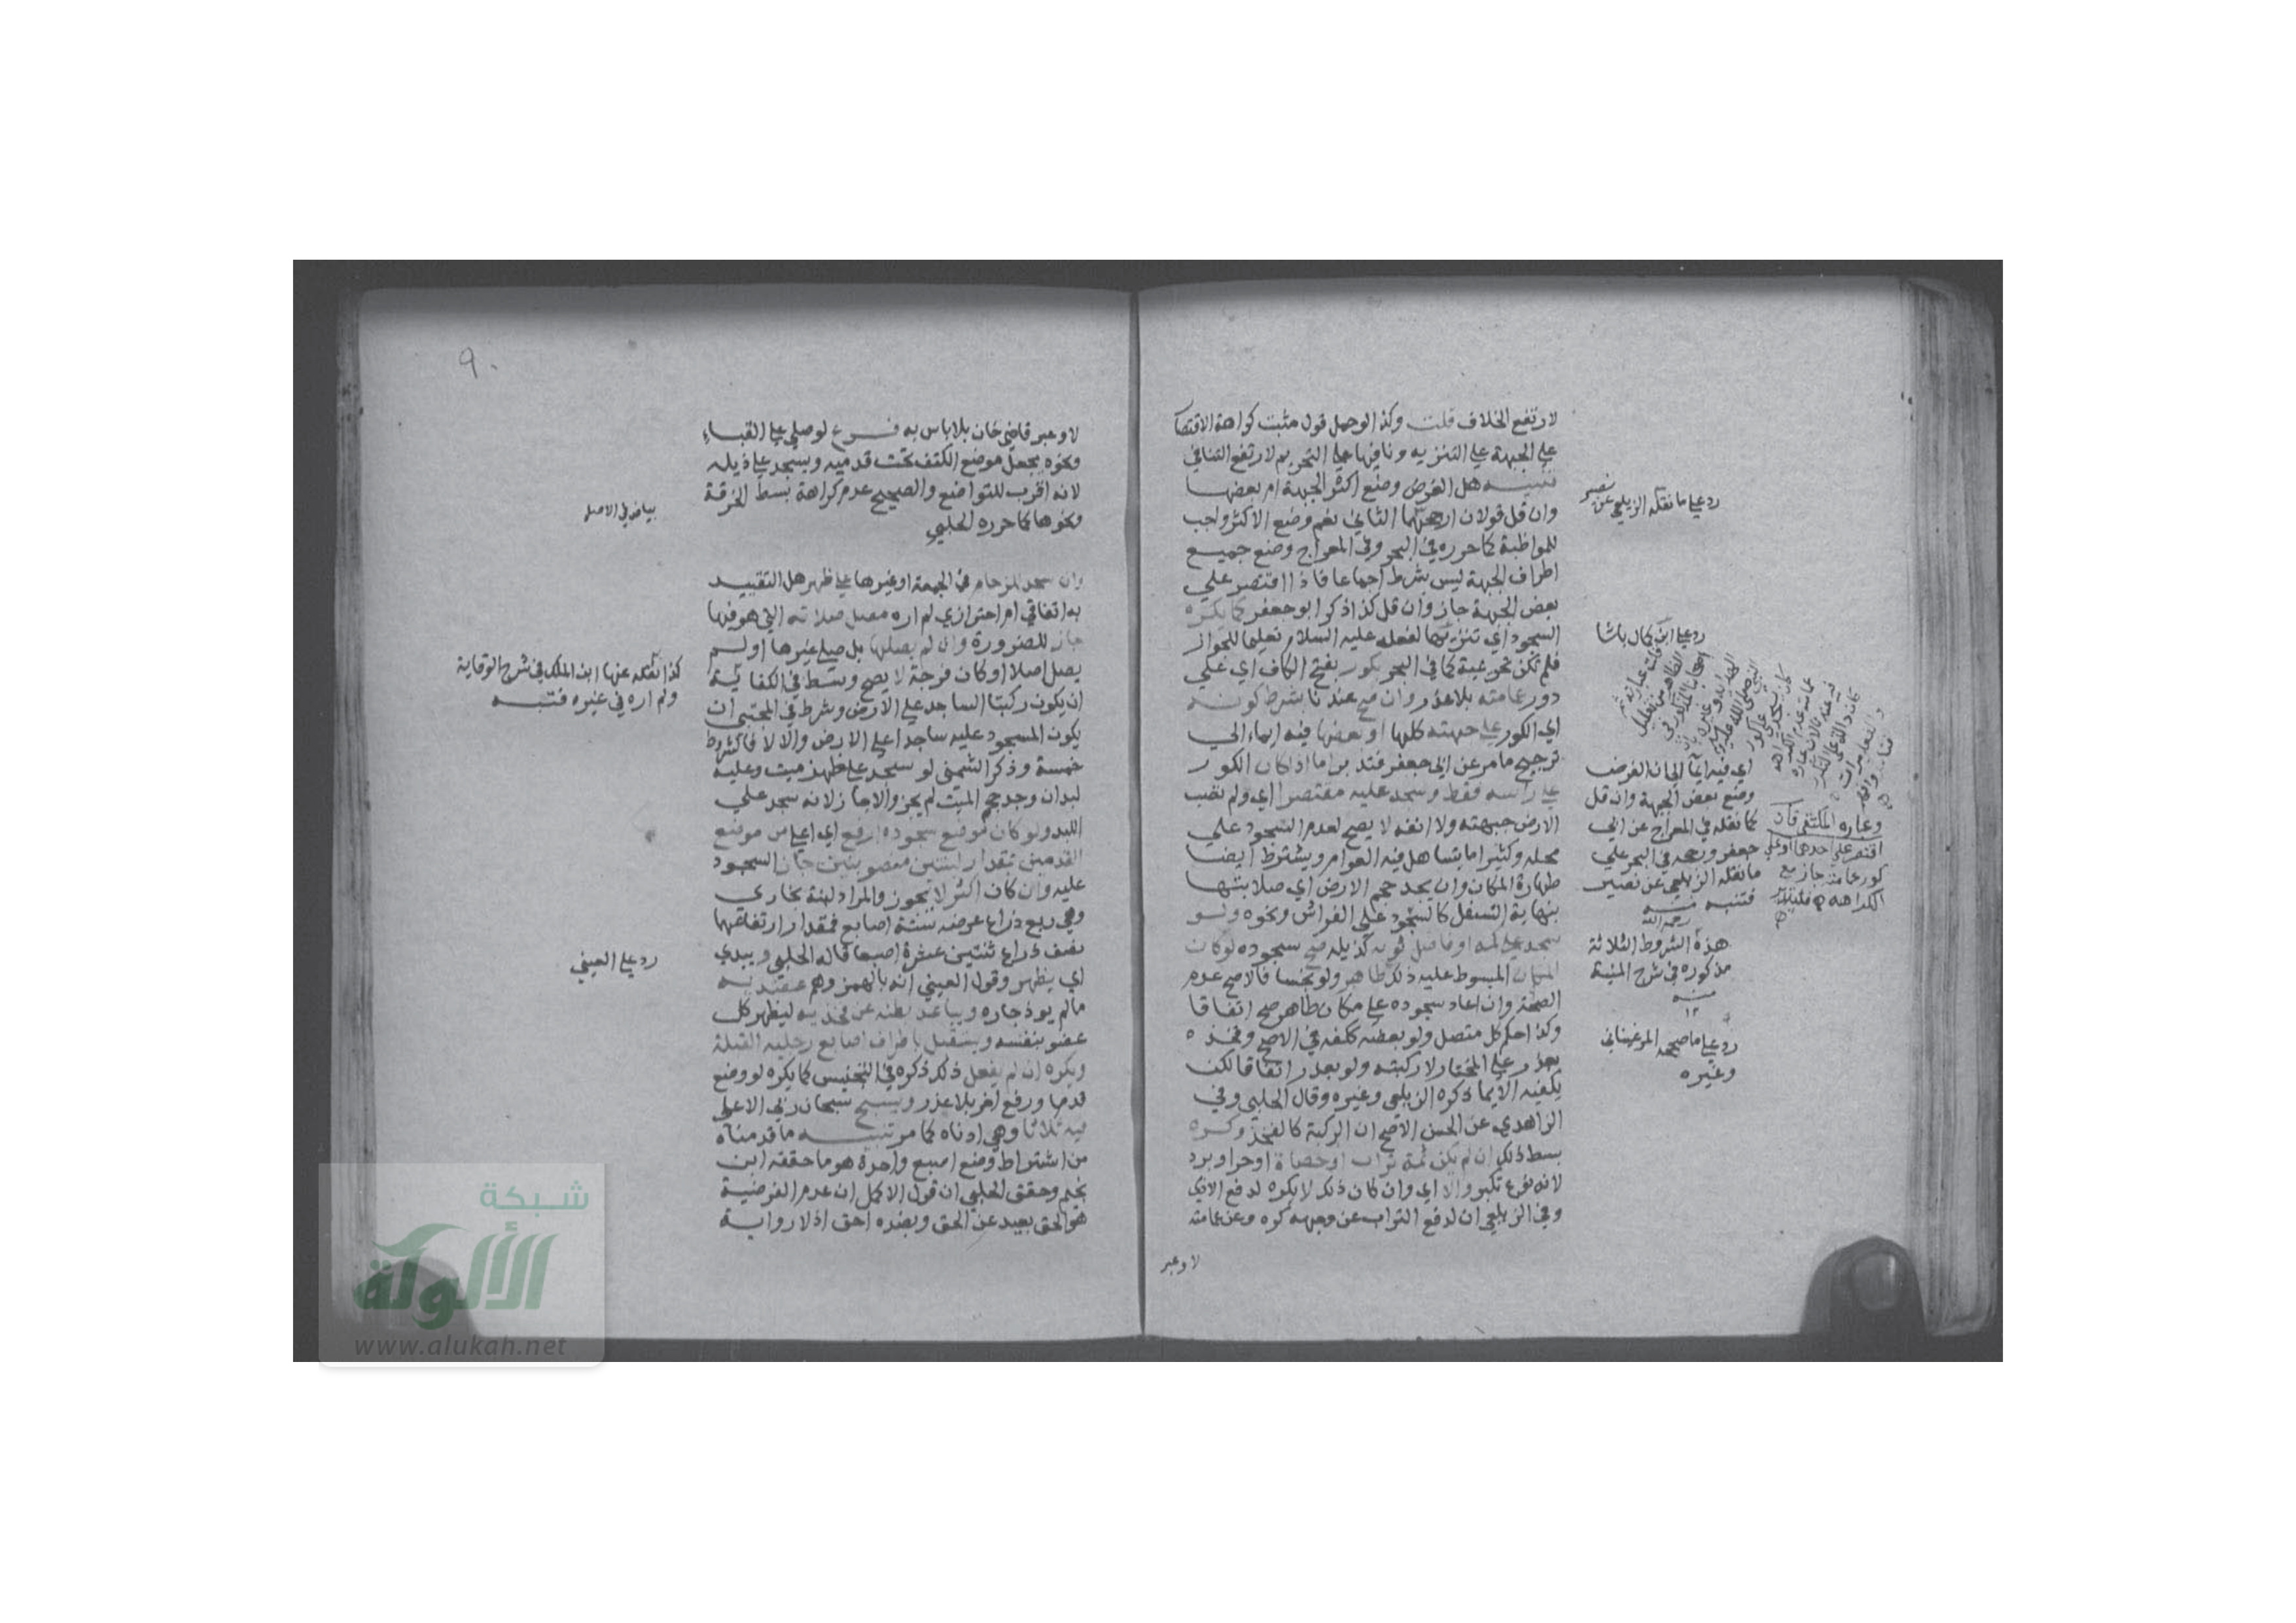 لارتفع الخلاف قلت وكذا لو حمل قول مثبت كراهة الاقتصار
علي الجبهة علي التنزيه ونافيها علي التحريم لارتفع التنافي
تنبيه هل الفرض وضع اكثر الجبهة ام بعضها
وان قل قولان ارجحهما الثاني نعم وضع الاكثر واجب
للمواظبة كما حرره في البحر وفي المعراج وضع جميع
اطراف الجبهة ليس بشرط اجماعا فاذا اقتصر علي
بعض الجبهة جاز وان قل كذا ذكر ابو جعفر كما يكره
السجود اي تنزيها لفعله عليه السلام تعليما للجواز
فلم تكن تحريمية كما في البحر بكور بفتح الكاف اي علي
دور عمامته بلا عذر وان صح عندنا شرط كونه
اي الكور علي جبهته كلها او بعضها فيه ايماء الي
ترجيح ما مر عن ابي جعفر فتدبر اما اذا كان الكور
علي راسه فقط وسجد عليه مقتصرا اي ولم تصب
الارض جبهته ولا انفه لا يصح لعدم السجود علي
محله وكثيرا ما يتساهل فيه العوام ويشترط ايضا
طهارة المكان وان يجد حجم الارض اي صلابتها
بنهاية التسفل كالسجود علي الفراش ونحوه ولو
سجد علي كمه او فاضل ثوبه كذيله صح سجوده لو كان
المكان المبسوط عليه ذلك طاهر ولو نجسا فالاصح عدم
الصحة وان اعاد سجوده علي مكان طاهر صح اتفاقا
وكذا حكم كل متصل ولو بعضه ككفه في الاصح وفخذه
بعذر علي المختار لا ركبته ولو بعذر اتفاقا لكن
يكفيه الايما ذكره الزيلعي وغيره وقال الحلبي وفي
الزاهدي عن الحسن الاصح ان الركبة كالفخذ وكره
بسط ذلك ان لم يكن ثمة تراب او حصاة او حر او برد
لانه نوع تكبر والا اي وان كان ذلك لا يكره لدفع الاذي
وفي الزيلعي ان لدفع التراب عن وجهه كره وعن عمامته
لا وعبر
رد علي ما نقله الزيلعي عن نصير
رد علي ابن كمال باشا
اي فيه ايما الي ان الفرض
وضع بعض الجبهة وان قل
كما نقله في المعراج عن ابي
جعفر ورجحه في البحر علي
ما نقله الزيلعي عن نصير
فتنبه منه
رحمه الله
وعبارة الملتقي فان
اقتصر علي احدهما او علي
كور عمامته جاز مع
الكراهة
هذه الشروط الثلاثة
مذكورة في شرح المنية
منه
١٢
رد علي ما صححه المرغيناني
وغيره
٩٠
لا وعبر قاضي خان بلا باس به فرع لو صلي علي القباء
ونحوه يجعل موضع الكتف تحت قدميه ويسجد علي ذيله
لانه اقرب للتواضع والصحيح عدم كراهة بسط الخرقة
ونحوها كما حرره الحلبي
وان سجد للزحام في الجمعة او غيرها علي ظهر هل التقييد
به اتفاقي ام احترازي لم اره مصل صلاته التي هو فيها
جاز للضرورة وان لم يصلها بل صلي غيرها او لم
يصل اصلا او كان فرجة لا يصح وشرط في الكفاية
ان يكون ركبتا الساجد علي الارض وشرط في المجتبي ان
يكون المسجود عليه ساجدا علي الارض والا لا فالشروط
خمسة وذكر الشمني لو سجد علي ظهر ميت وعليه
لبد ان وجد حجم الميت لم يجز والا جاز لانه سجد علي
اللبد ولو كان موضع سجوده ارفع اي اعلي من موضع
القدمين بمقدار لبنتين منصوبتين جاز السجود
عليه وان كان اكثر لا يجوز والمراد لبنة بخاري
وهي ربع ذراع عرض ستة اصابع فمقدار ارتفاعهما
نصف ذراع ثنتين عشرة اصبعا قاله الحلبي ويبدي
اي يظهر وقول العيني انه بالهمز وهم عضديه
ما لم يوذ جاره ويباعد بطنه عن فخذيه ليظهر كل
عضو بنفسه ويستقبل باطراف اصابع رجليه القبلة
ويكره ان لم يفعل ذلك ذكره في التجنيس كما يكره لو وضع
قدما ورفع اخر بلا عذر ويسبح سبحان ربي الاعلي
فيه ثلاثا وهي ادناه كما مر تنبيه ما قدمناه
من اشتراط وضع اصبع واحدة هو ما حققه ابن
نجيم وحقق الحلبي ان قول الاكمل ان عدم الفرضية
هو الحق بعيد عن الحق وبضده احق اذ لا رواية
بياض في الاصل
كذا نقله عنها ابن الملك في شرح الوقاية
ولم اره في غيره فتنبه
رد علي العيني
شبكة
الألوكة
www.alukah.net